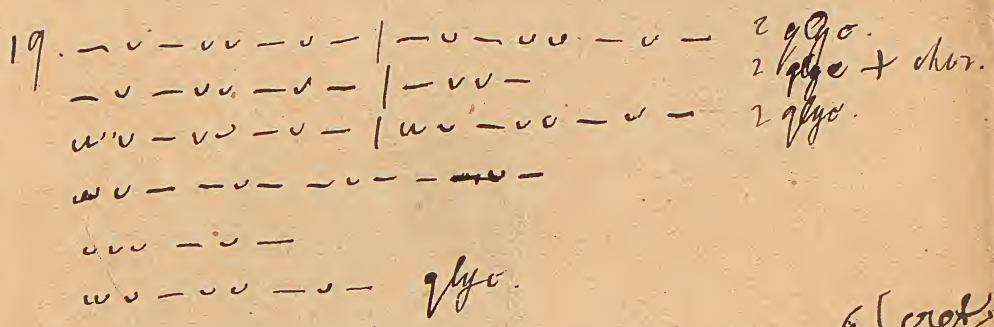 19. — ᴗ — ᴗᴗ — ᴗ — | — ᴗ — ᴗᴗ — ᴗ — 2 glyc.
— ᴗ — ᴗᴗ — ᴗ — | — ᴗᴗ — 2 glyc + chor.
ᴗᴗ ᴗ — ᴗᴗ — ᴗ — | ᴗᴗ ᴗ — ᴗᴗ — ᴗ — 2 glyc.
ᴗᴗ ᴗ — — ᴗ — — ᴗ — — ᴗ —
ᴗᴗᴗ — ᴗ —
ᴗᴗ ᴗ — ᴗᴗ — ᴗ — glyc.